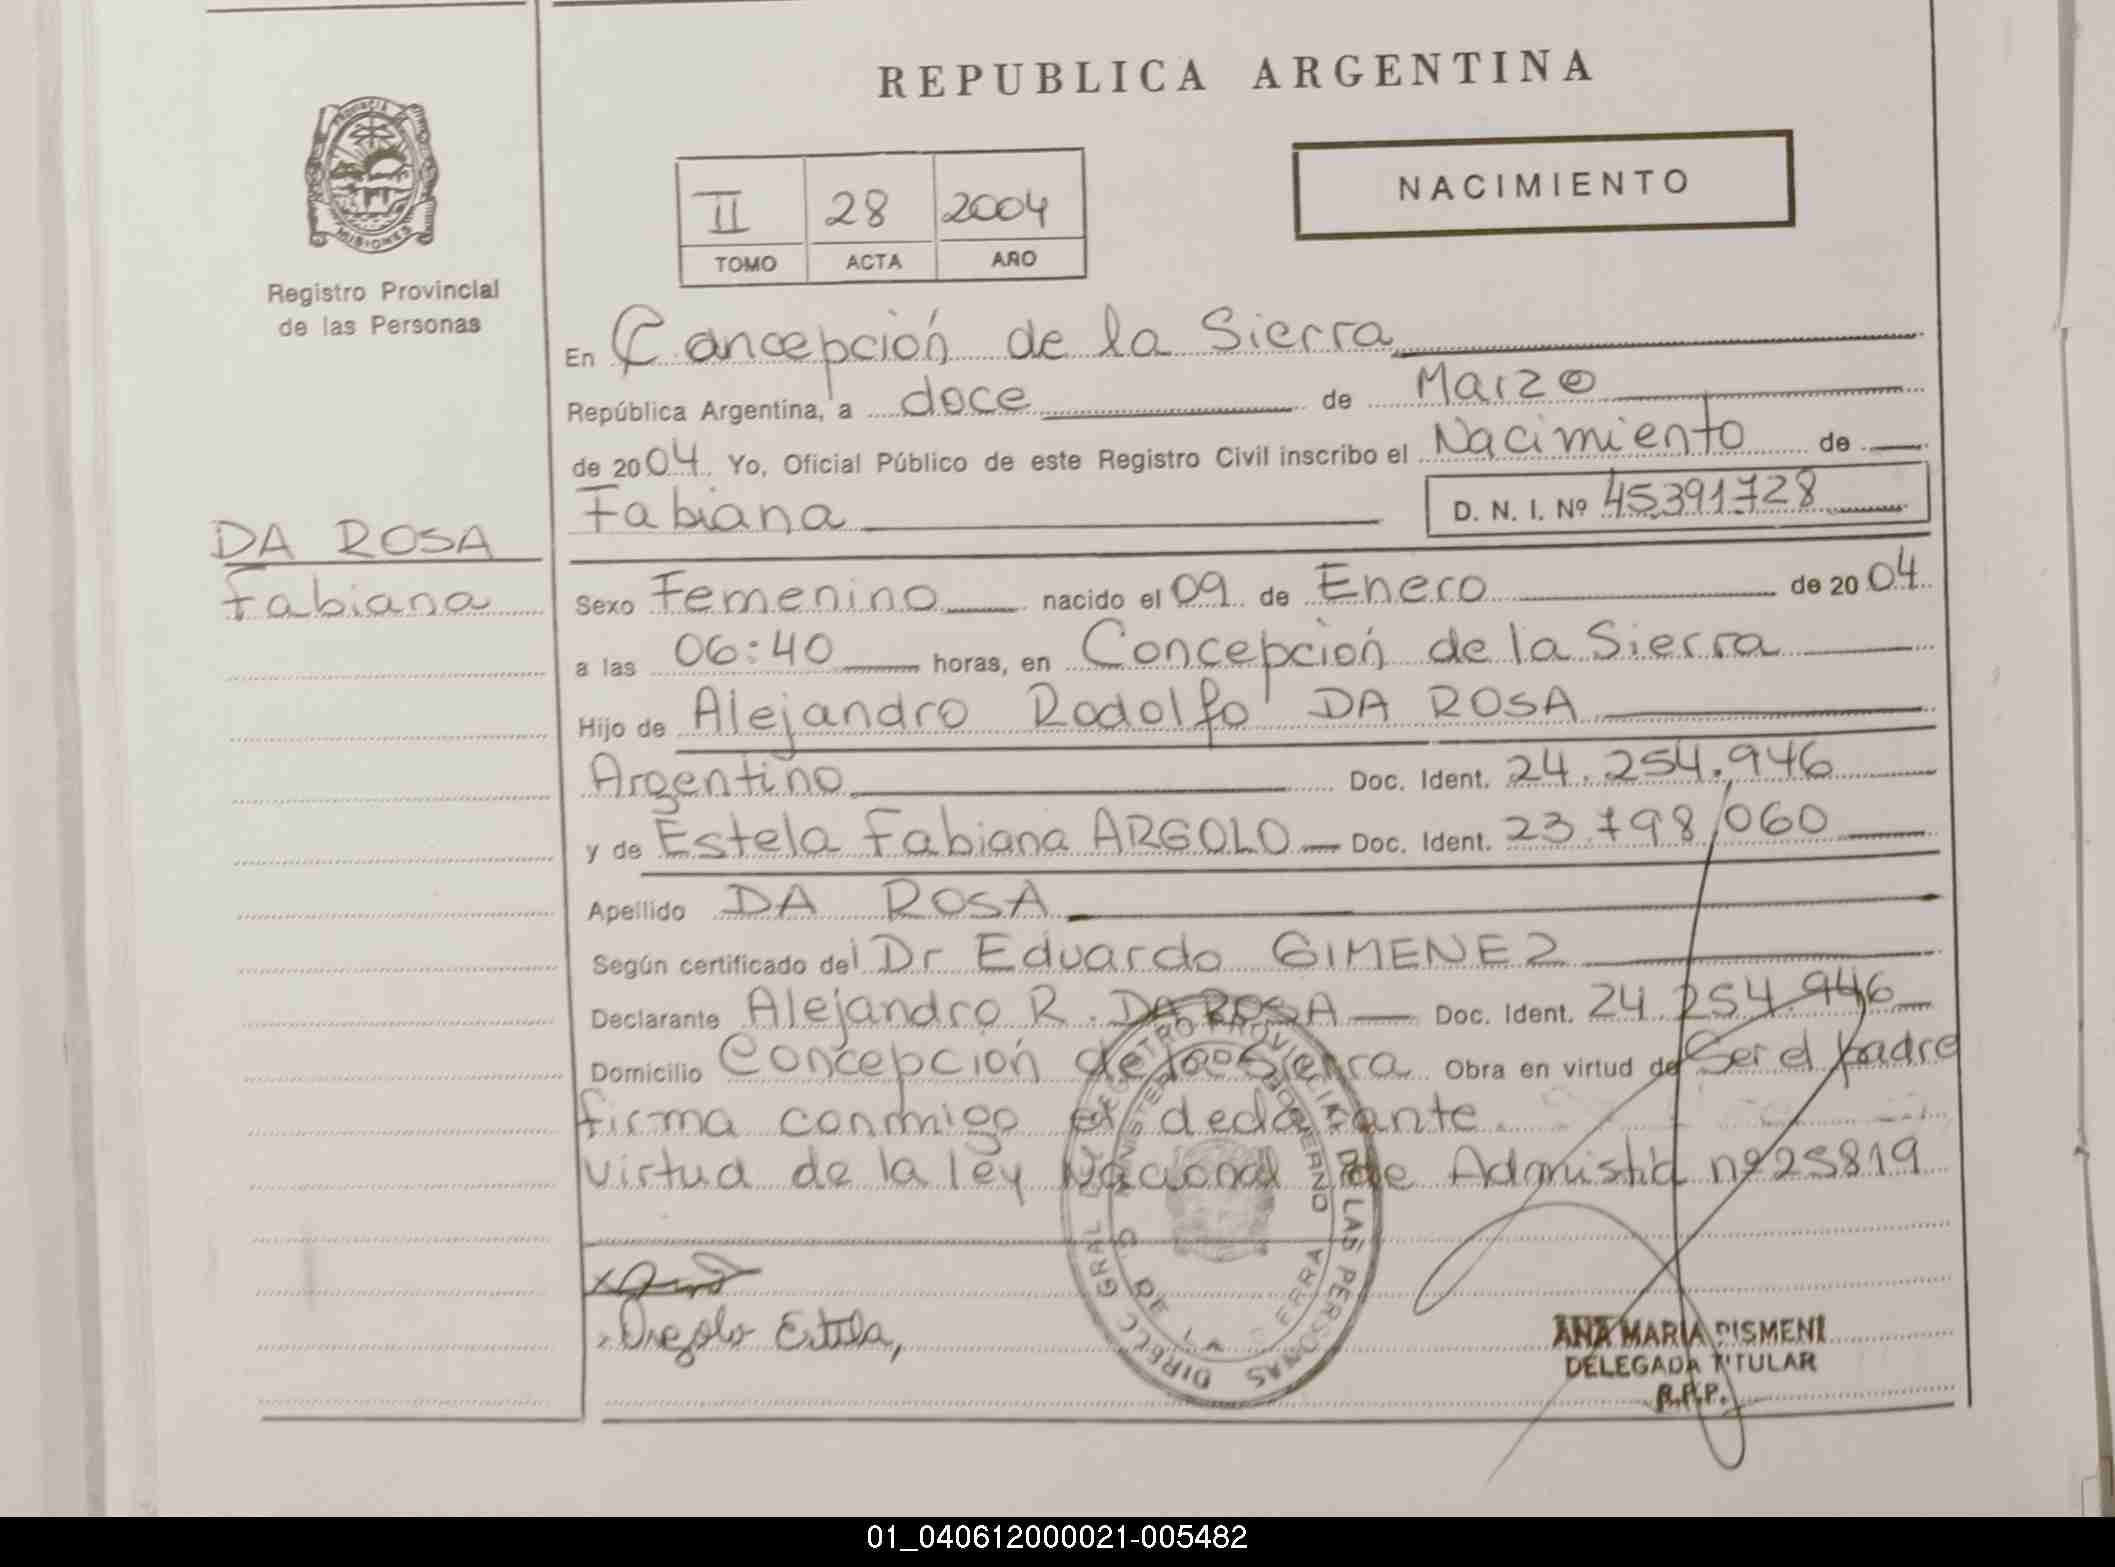 REPUBLICA ARGENTINA
PROVINCIA
MISIONES
Registro Provincial
de las Personas
II 28 2004
TOMO ACTA AÑO
NACIMIENTO
En Concepción de la Sierra
República Argentina, a doce de Marzo
de 2004 Yo, Oficial Público de este Registro Civil inscribo el Nacimiento de
Fabiana D. N. I. Nº 45391728
DA ROSA
Fabiana
Sexo Femenino nacido el 09 de Enero de 2004
a las 06:40 horas, en Concepción de la Sierra
Hijo de Alejandro Rodolfo DA ROSA
Argentino Doc. Ident. 24.254.946
y de Estela Fabiana ARGOLO Doc. Ident. 23.798.060
Apellido DA ROSA
Según certificado del Dr Eduardo GIMENEZ
Declarante Alejandro R. DA ROSA Doc. Ident. 24.254.946
Domicilio Concepción de la Sierra Obra en virtud de Ser el padre
firma conmigo el declarante
virtud de la ley Nacional de nº 25819
DIRECC GRAL REGISTRO PROVINCIAL DE LAS PERSONAS
MINISTERIO GOBIERNO
Estela,
ANA MARIA PISMENI
DELEGADA TITULAR
R.P.P.
01_040612000021-005482